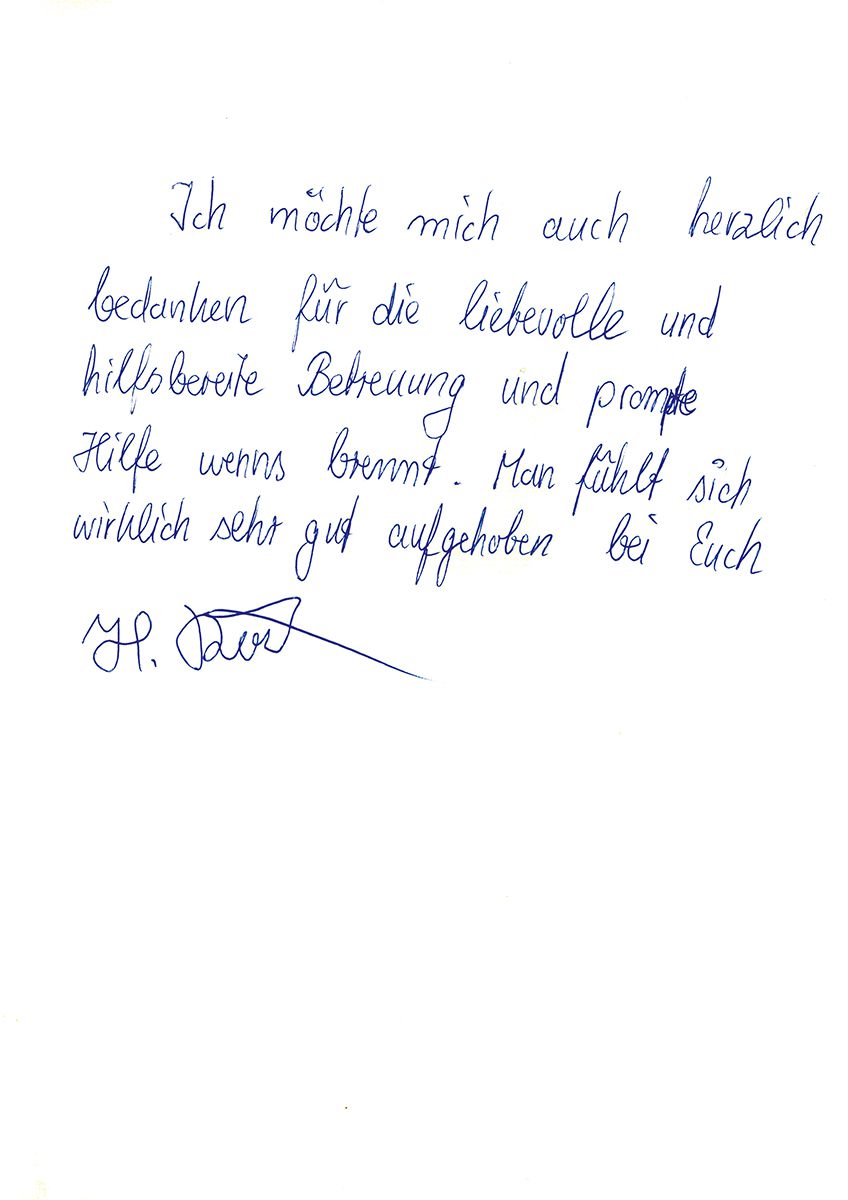 Ich möchte mich auch herzlich
bedanken für die liebevolle und
hilfsbereite Betreuung und prompte
Hilfe wenns brennt. Man fühlt sich
wirklich sehr gut aufgehoben bei Euch
H.